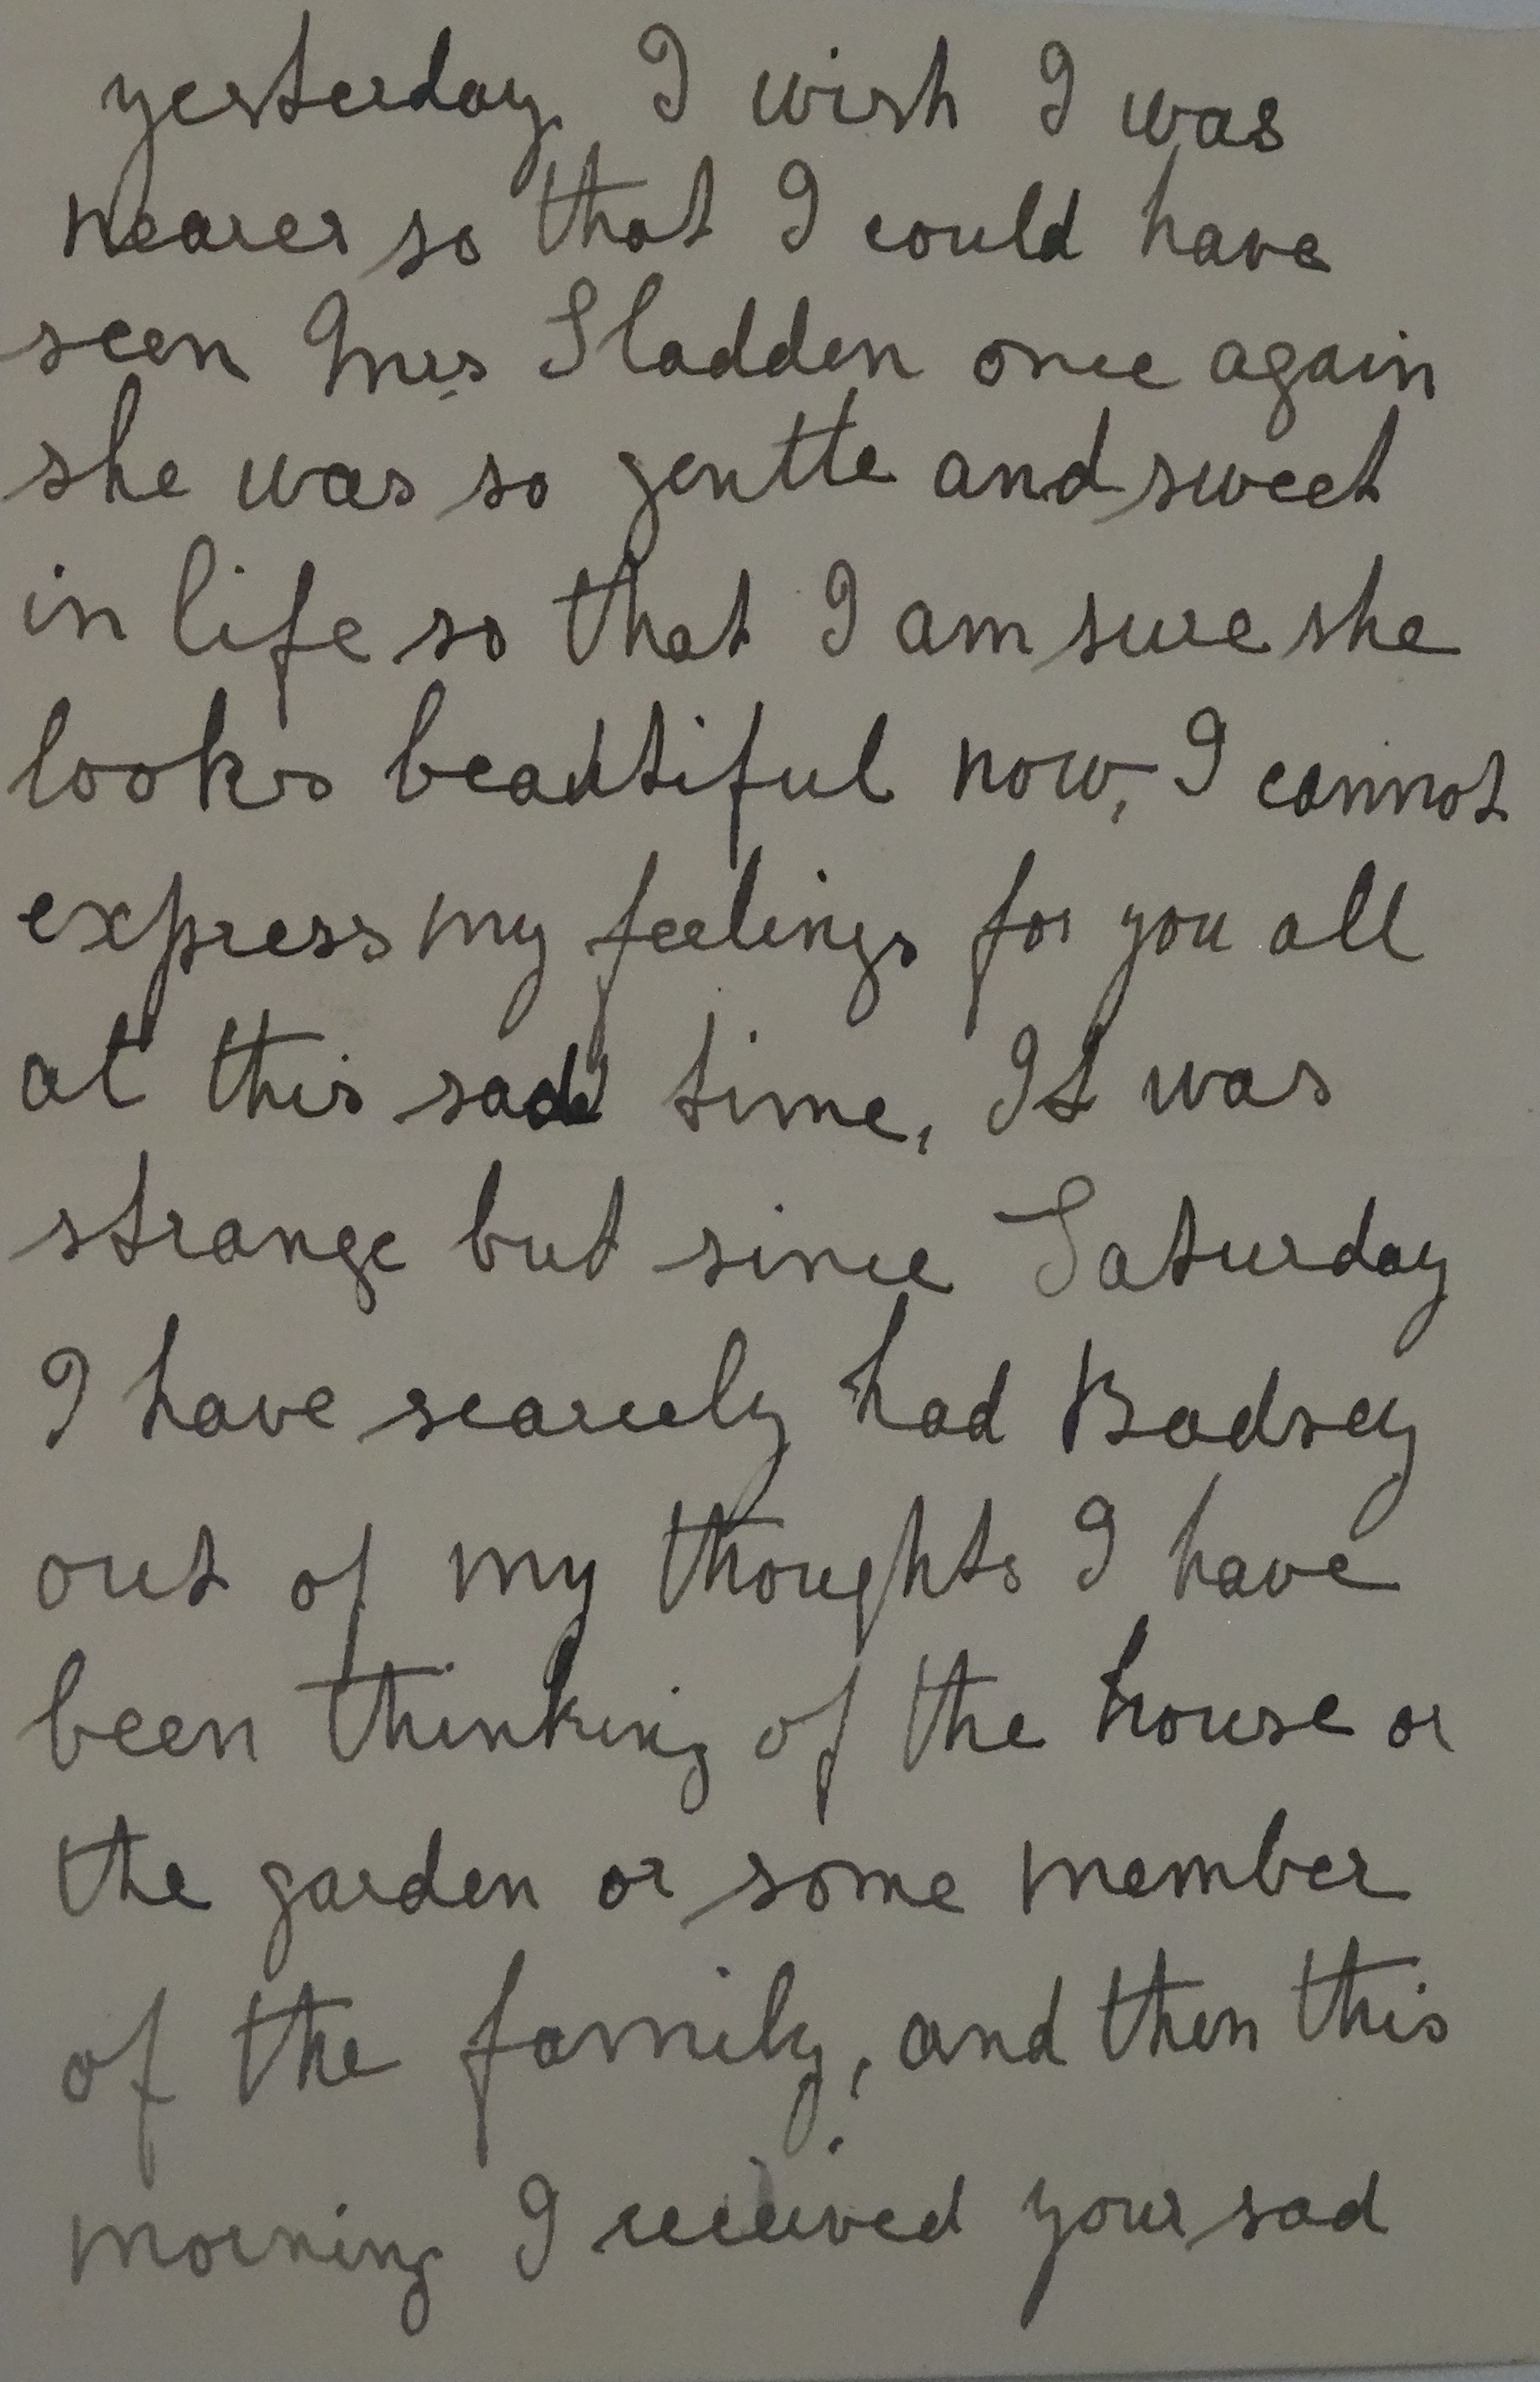 yesterday. I wish I was
nearer so that I could have
seen Mrs Sladden once again
she was so gentle and sweet
in life so that I am sure she
looks beautiful now, I cannot
express my feelings for you all
at this sad time, It was
strange but since Saturday
I have scarcely had Badsey
out of my thoughts I have
been thinking of the house or
the garden or some member
of the family, and then this
morning I received your sad